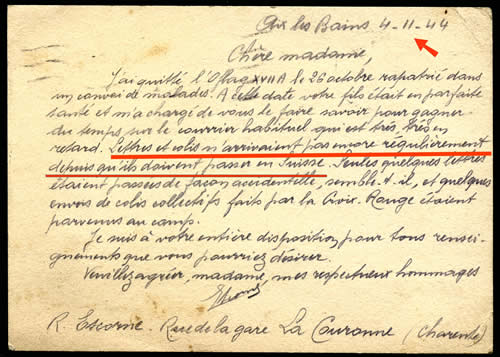 Aix les Bains 4-11-44
Chère madame,
J'ai quitté l'Oflag XVIIA le 26 octobre rapatrié dans
un convoi de malades. A cette date votre fils était en parfaite
santé et m'a chargé de vous le faire savoir pour gagner
du temps sur le courrier habituel qui est très, très en
retard. Lettres et colis n'arrivaient pas encore régulièrement
depuis qu'ils doivent passer en Suisse. Seules quelques lettres
étaient passées de façon accidentelle, semble-t-il, et quelques
envois de colis collectifs faits par la Croix-Rouge étaient
parvenus au camp.
Je suis à votre entière disposition pour tous rensei-
gnements que vous pourriez désirer.
Veuillez agréer, madame, mes respectueux hommages
R. Escorne. Rue de la gare La Couronne (Charente)